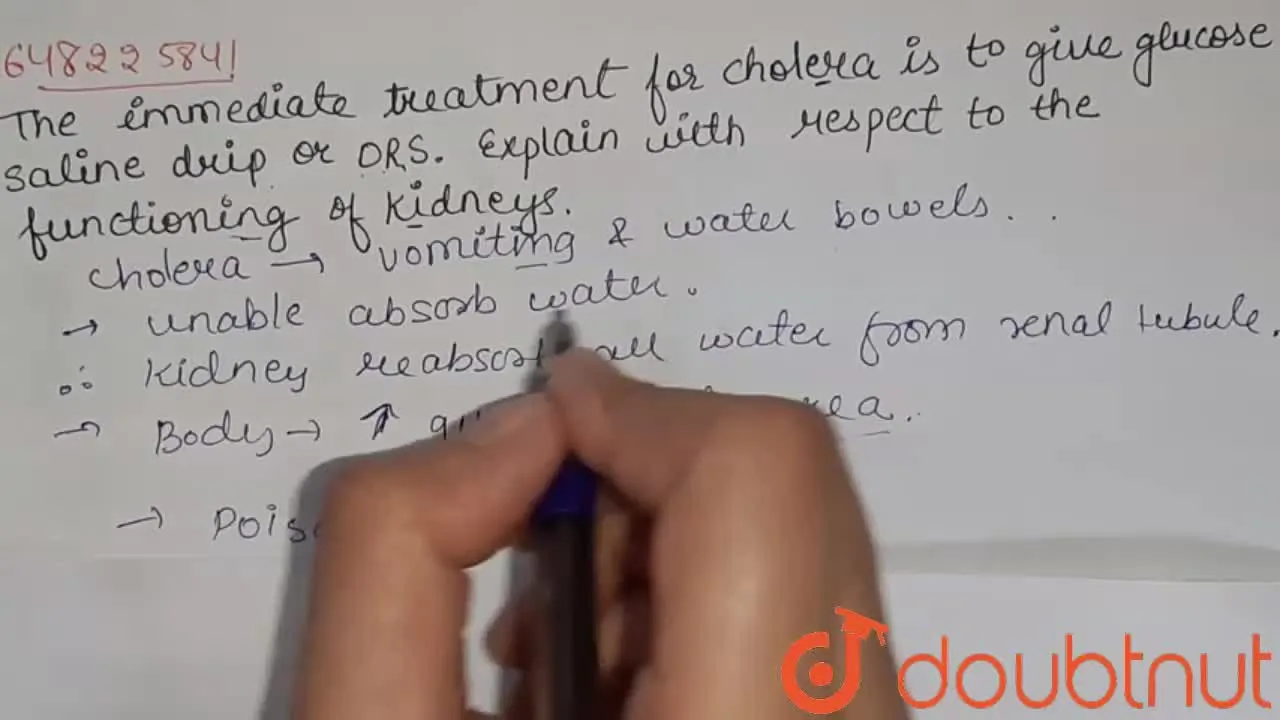 648225841
The immediate treatment for cholera is to give glucose
saline drip or ORS. Explain with respect to the
functioning of kidneys.
cholera → vomiting & water bowels. .
→ unable absorb water.
∴ kidney reabsorb all water from renal tubule.
→ Body → ↑
→
doubtnut